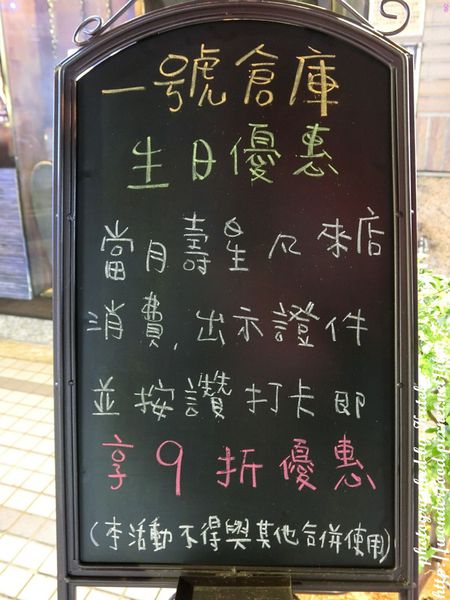 一號倉庫
生日優惠
當月壽星凡來店
消費,出示證件
並按讚打卡即
享9折優惠
(本活動不得與其他合併使用)